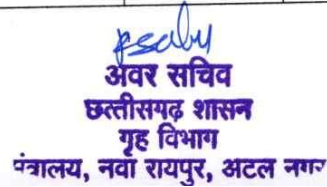 अवर सचिव
छत्तीसगढ़ शासन
गृह विभाग
मंत्रालय, नवा रायपुर, अटल नगर